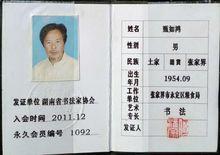 发证单位 湖南省书法家协会
入会时间 2011.12
永久会员编号 1092
姓名 甄如鸿
性别 男
民族 土家 籍贯 张家界
出生年月 1954.09
工作单位 张家界市永定区粮食局
艺术专长 书法
发证人